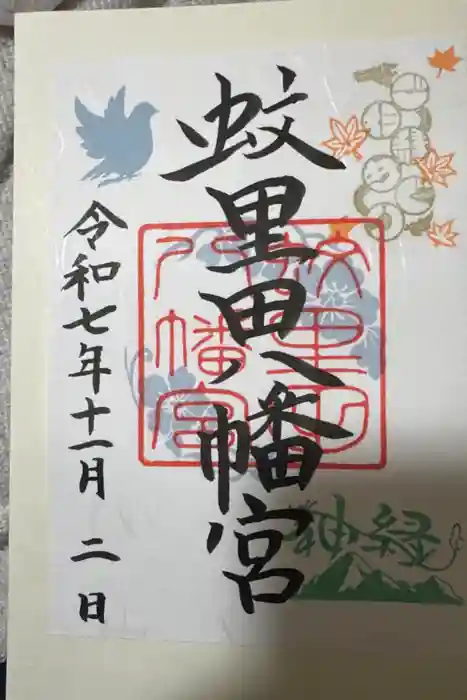 蚊里田八幡宮
蚊里田
八幡宮
神縁
令和七年十一月二日